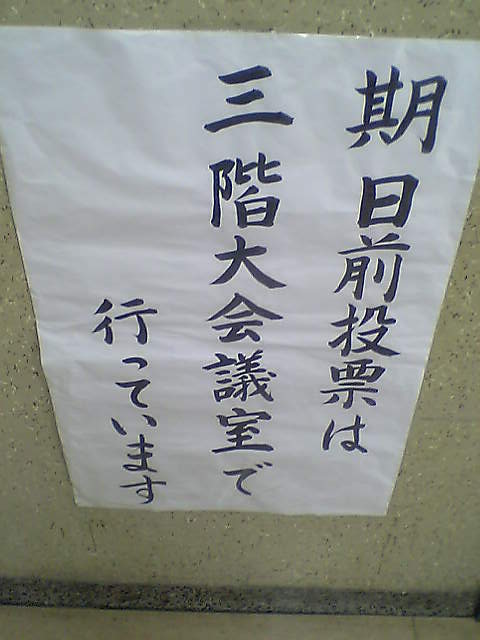 期日前投票は
三階大会議室で
行っています